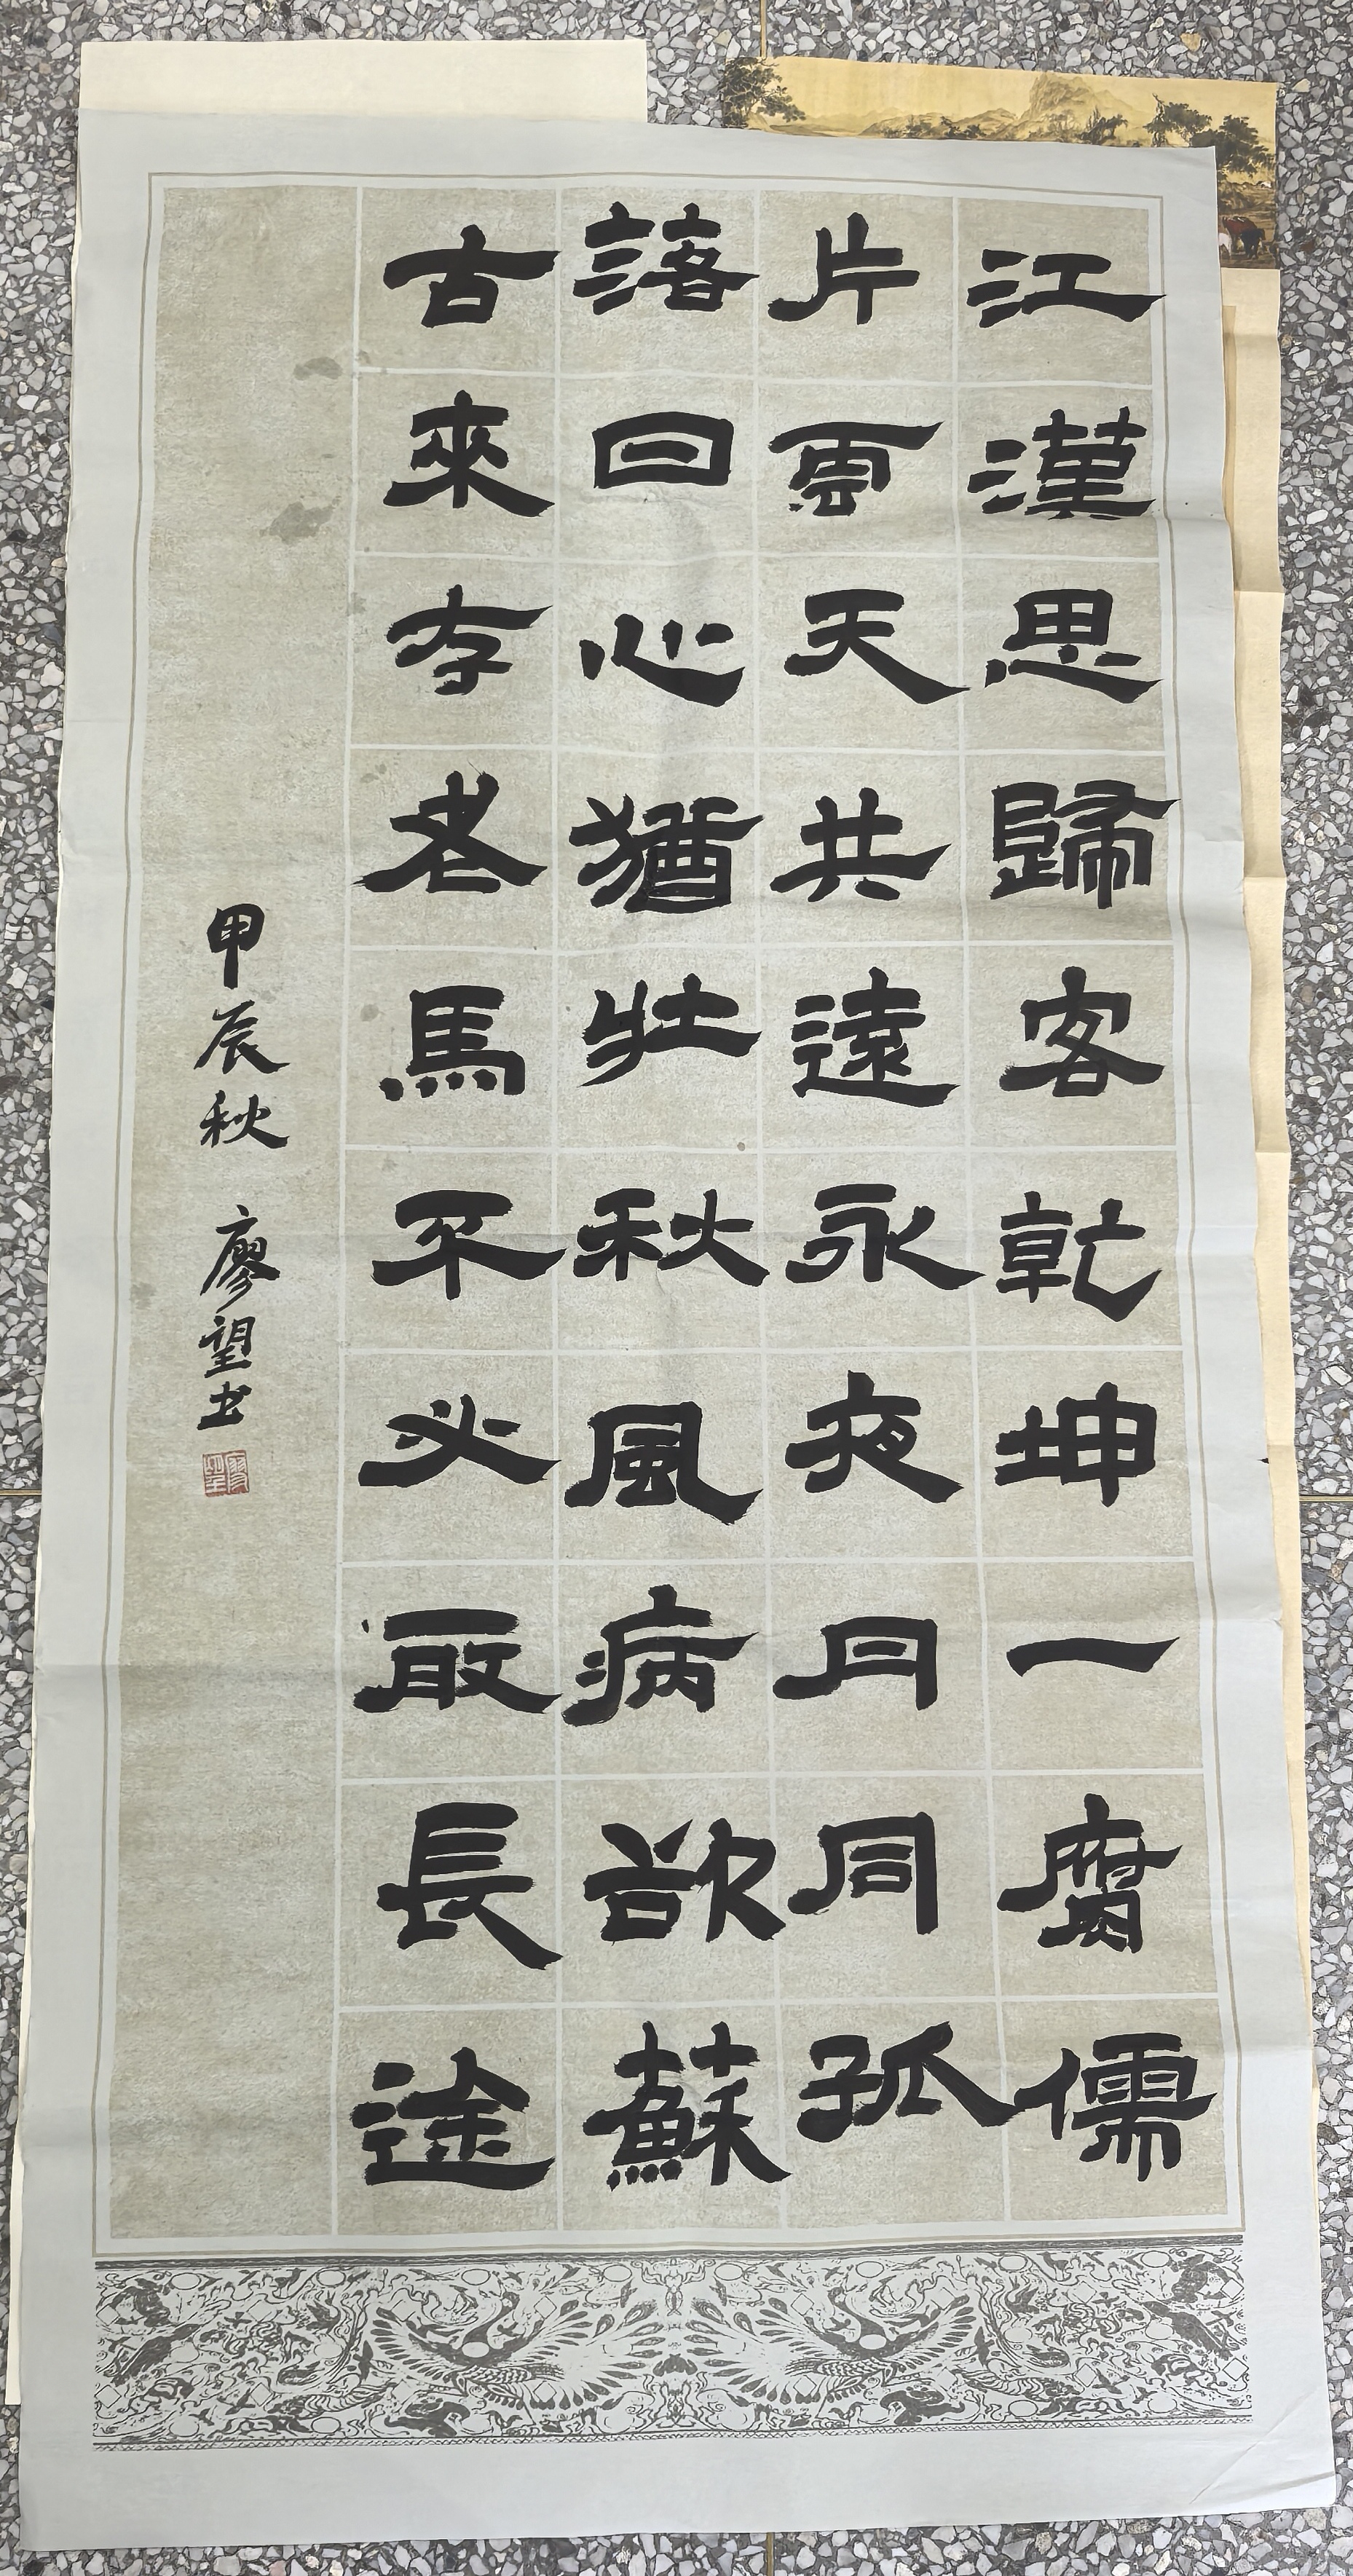 江漢思歸客乾坤一腐儒
片雲天共遠永夜月同孤
落日心猶壯秋風病欲蘇
古來存老馬不必取長途
甲辰秋 廖望书
廖望